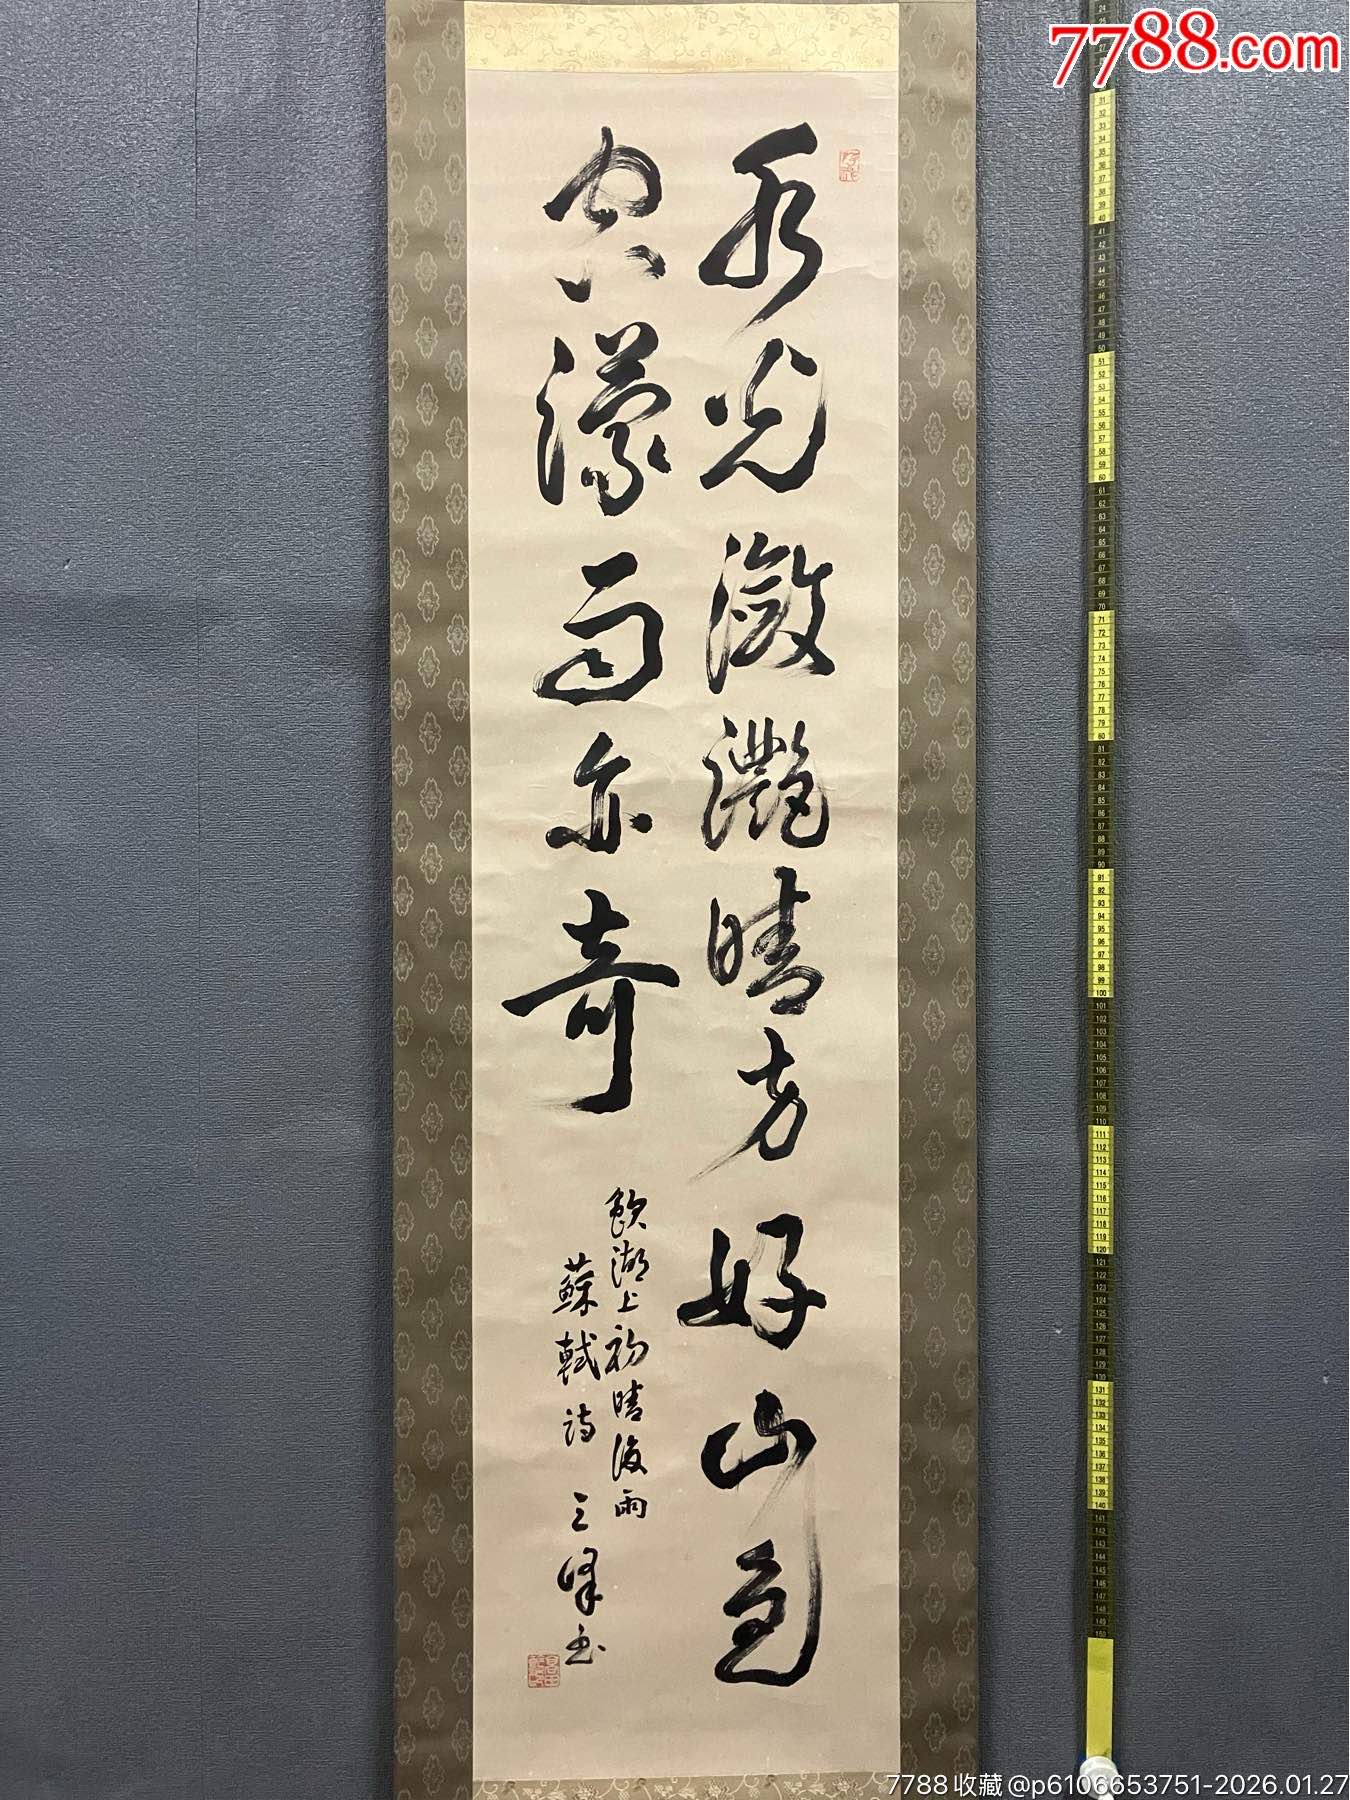 7788.com
水光瀲灩晴方好山色
空濛雨亦奇
飲湖上初晴後雨
蘇軾詩 三峰书
7788收藏@p6106653751-2026.01.27